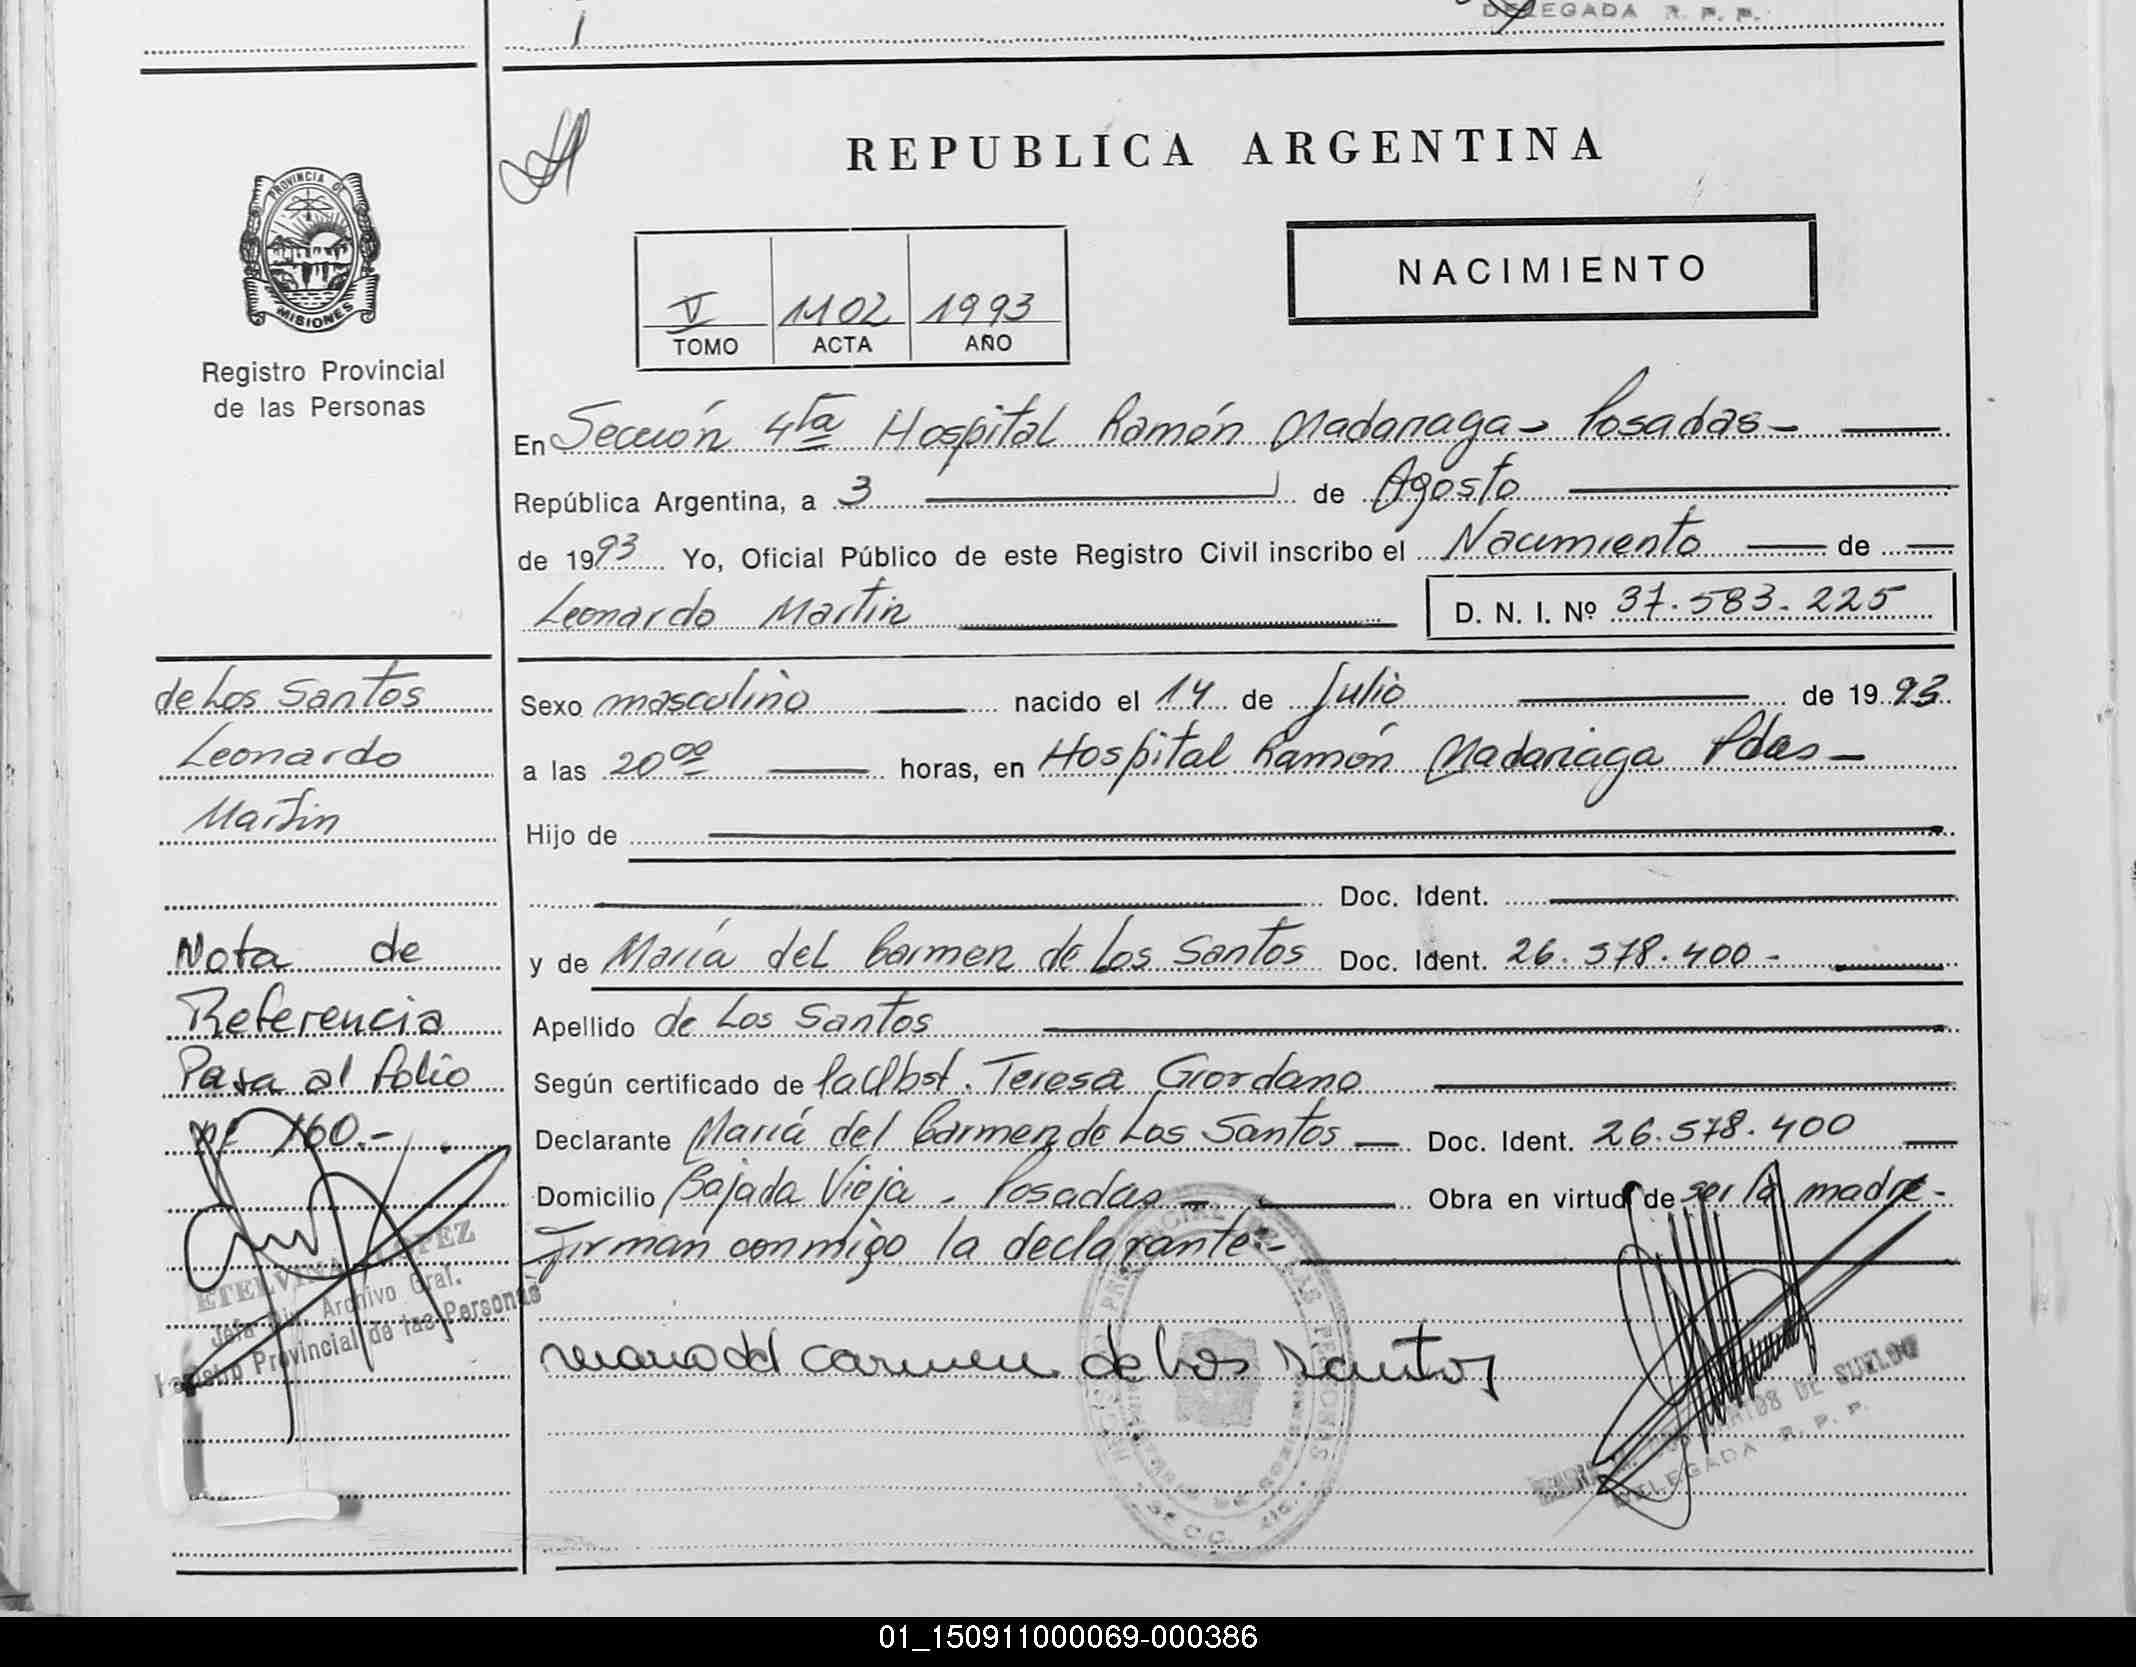 DELEGADA R. P. P.
PROVINCIA DE
MISIONES
Registro Provincial
de las Personas
REPUBLICA ARGENTINA
NACIMIENTO
V 1102 1993
TOMO ACTA AÑO
En Sección 4ta Hospital Ramón Madariaga - Posadas -
República Argentina, a 3 de Agosto
de 1993 Yo, Oficial Público de este Registro Civil inscribo el Nacimiento de
Leonardo Martin D. N. I. Nº 37.583.225
de Los Santos
Leonardo
Martin
Nota de
Referencia
Pasa al folio
Nº 160.-
ETELVINA LOPEZ
Jefa Div. Archivo Gral.
Registro Provincial de las Personas
Sexo masculino nacido el 14 de Julio de 1993
a las 20 00 horas, en Hospital Ramón Madariaga Pdas -
Hijo de
Doc. Ident.
y de María del Carmen de Los Santos Doc. Ident. 26.578.400 -
Apellido de Los Santos
Según certificado de la Obst. Teresa Giordano
Declarante María del Carmen de Los Santos Doc. Ident. 26.578.400
Domicilio Bajada Vieja - Posadas - Obra en virtud de ser la madre -
Firman conmigo la declarante.-
Maria del Carmen de Los Santos
REGISTRO PROVINCIAL DE LAS PERSONAS
DE SUELDO
DELEGADA R. P. P.
01_150911000069-000386